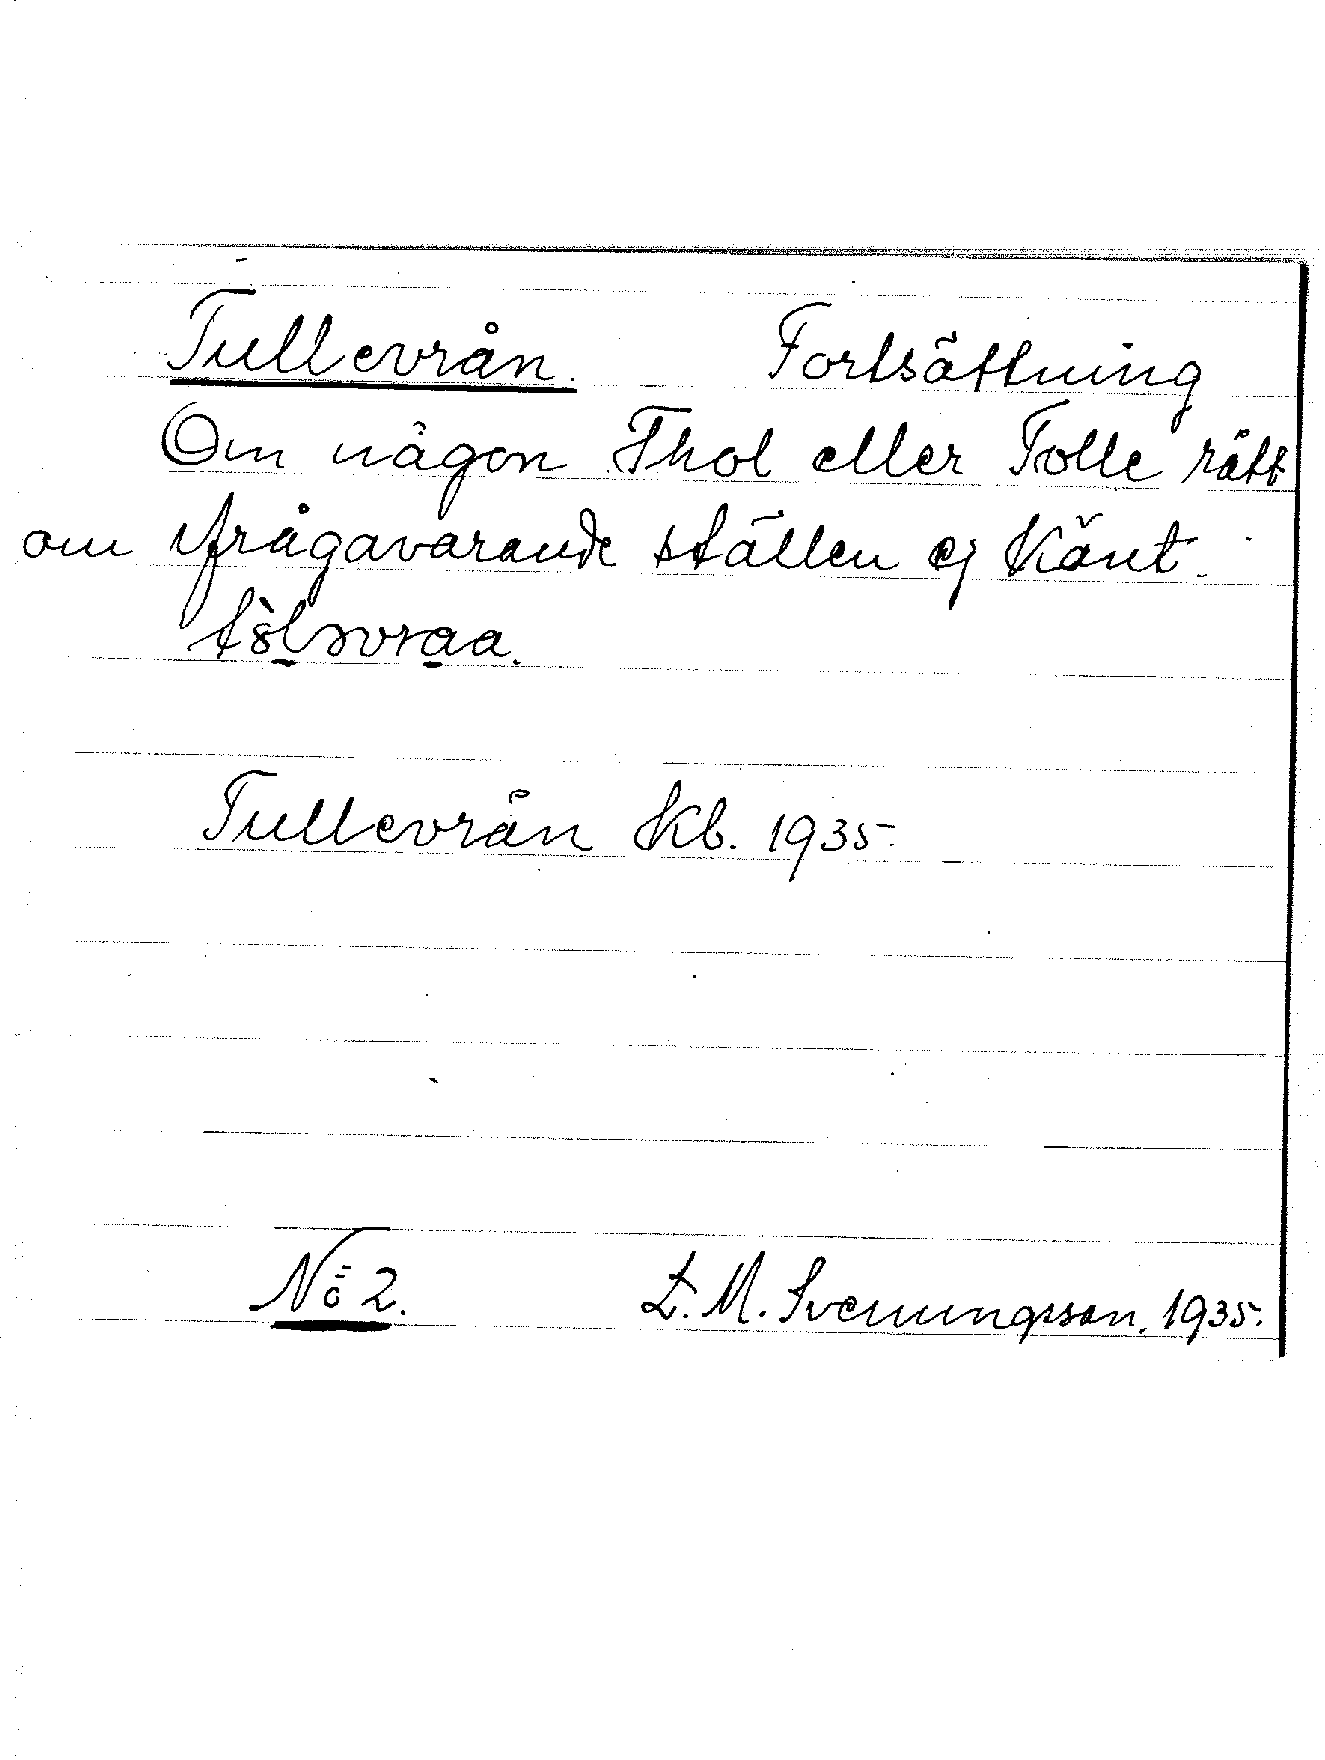 Tullevrån. Fortsättning
Om någon Thol eller Tolle rått
om ifrågavarande ställen ej känt.
Tullevrån Kb. 1935.
No 2. L. M. Svenungsson. 1935.